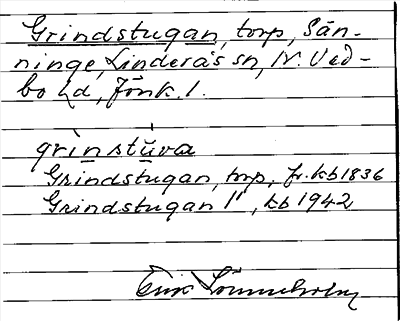 Grindstugan, torp, Sän-
ninge, Linderås sn, N. Ved-
bo hd, Jönk. l.
grìnstúva
Grindstugan, torp, fr. kb 1836
Grindstugan 1", kb 1942
Erik Lönnerholm